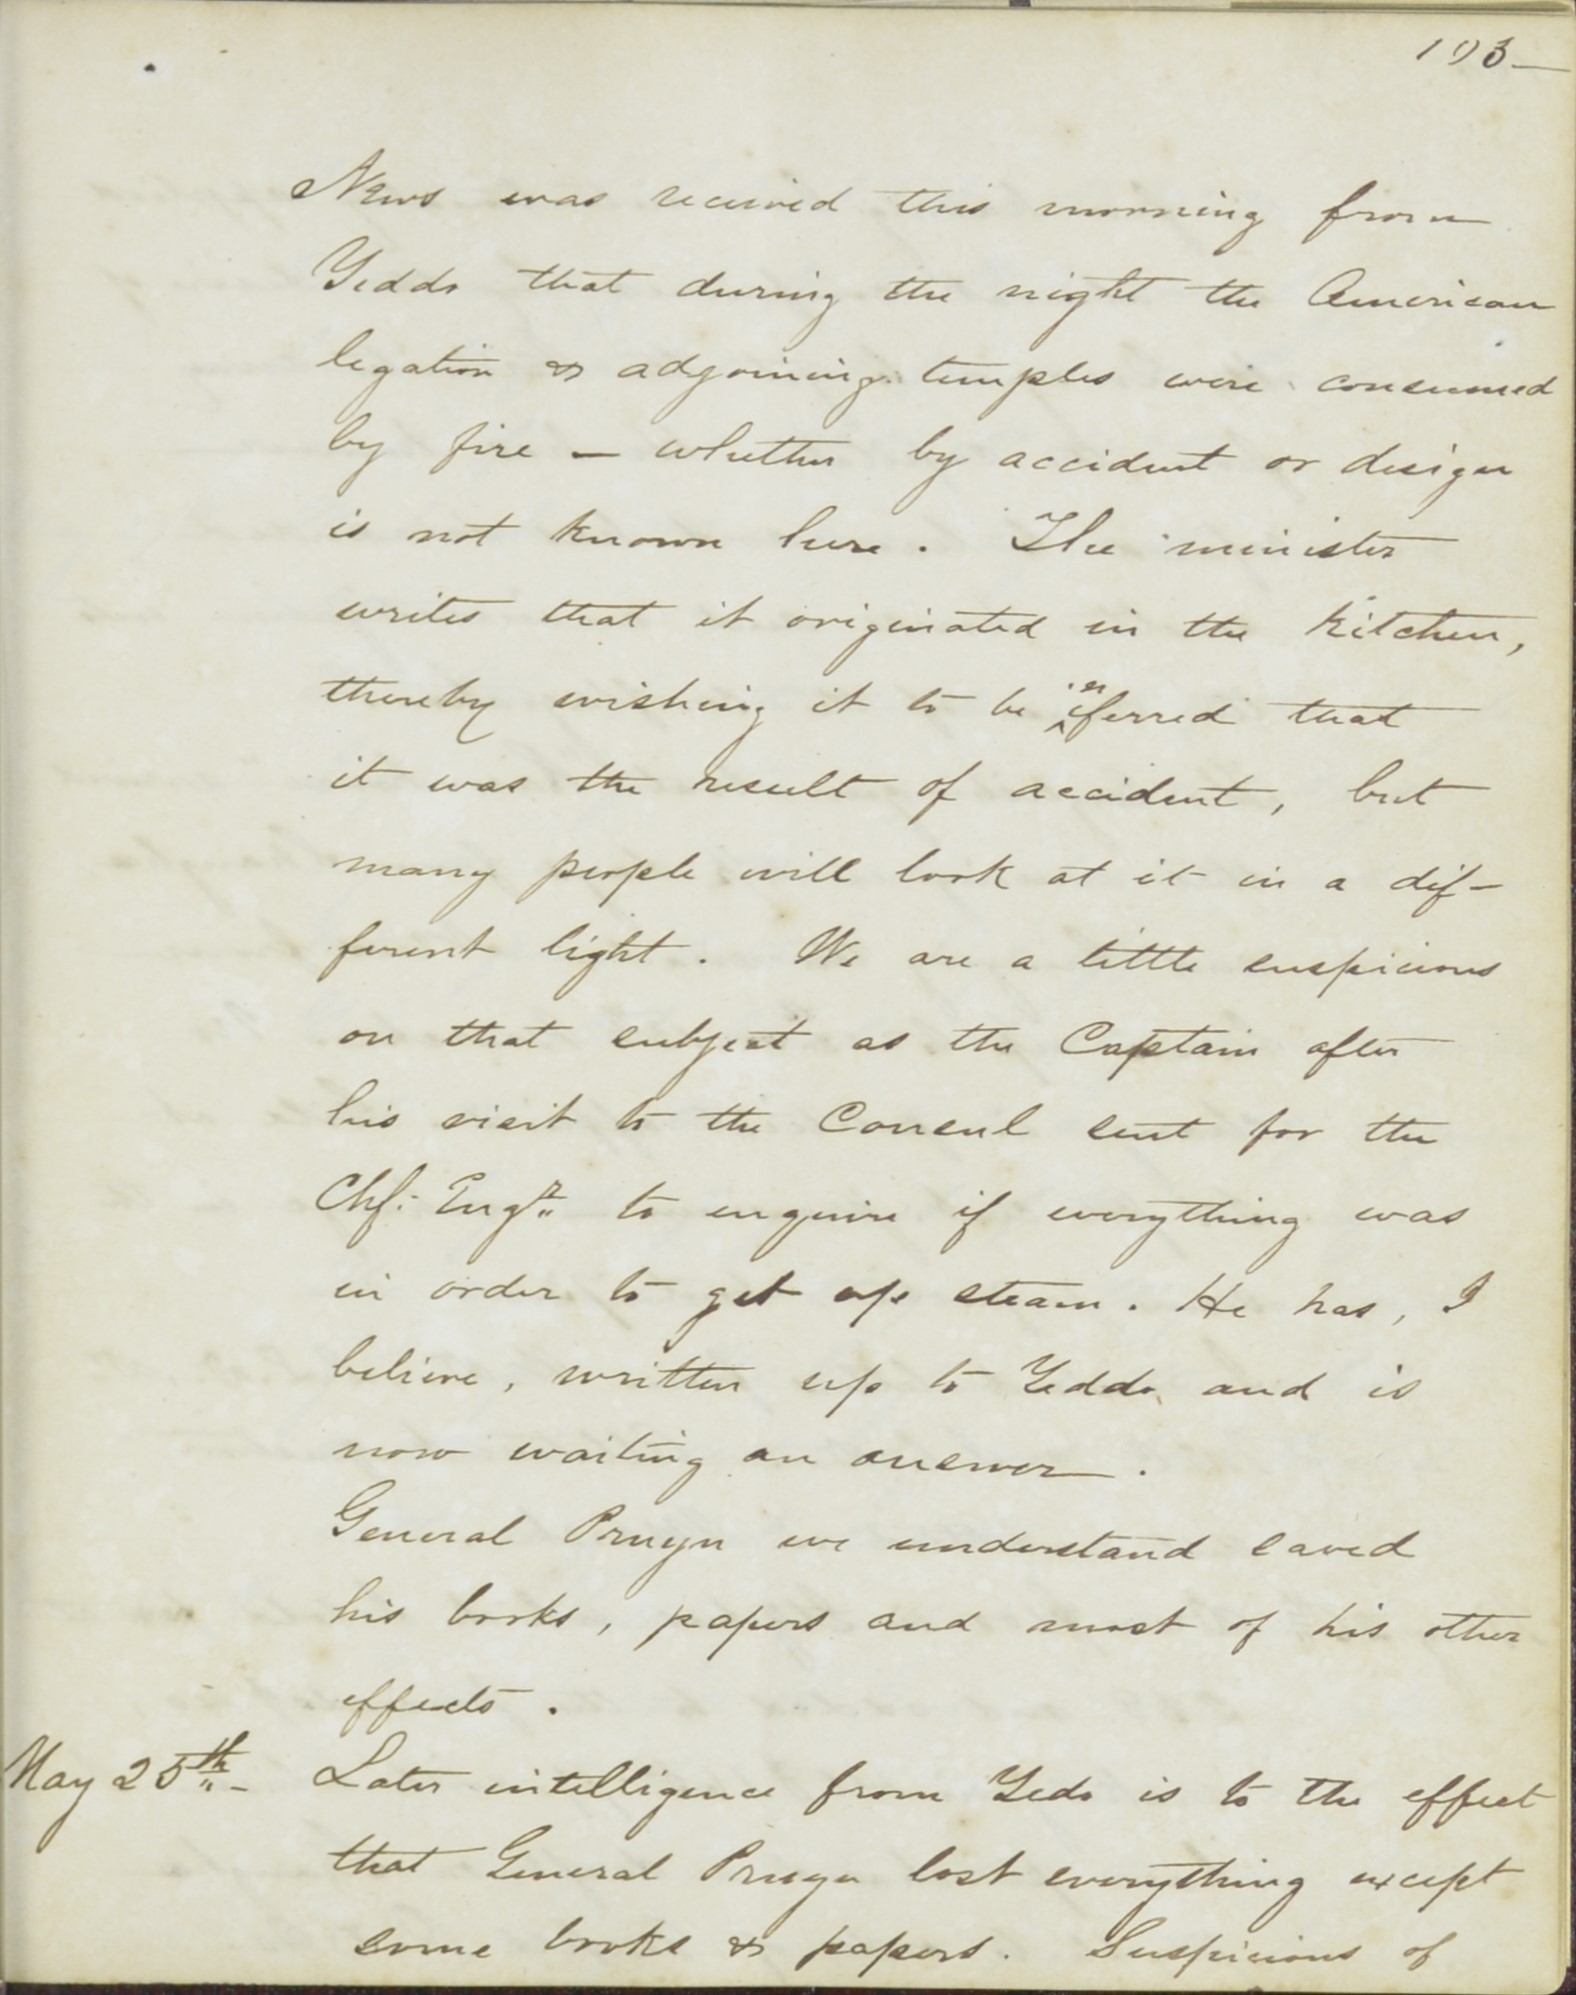 193—
News was received this morning from
Yeddo that during the night the American
legation & adjoining temples were consumed
by fire — whether by accident or design
is not known here. The minister
writes that it originated in the kitchen,
thereby wishing it to be inferred that
it was the result of accident, but
many people will look at it in a dif-
ferent light. We are a little suspicious
on that subject as the Captain after
his visit to the Consul sent for the
Chf: Engr. to enquire if everything was
in order to get up steam. He has, I
believe, written up to Yeddo and is
now waiting an answer.
General Pruyn we understand saved
his books, papers and most of his other
effects.
May 25th- Later intelligence from Yedo is to the effect
that General Pruyn lost everything except
some books & papers. Suspicions of